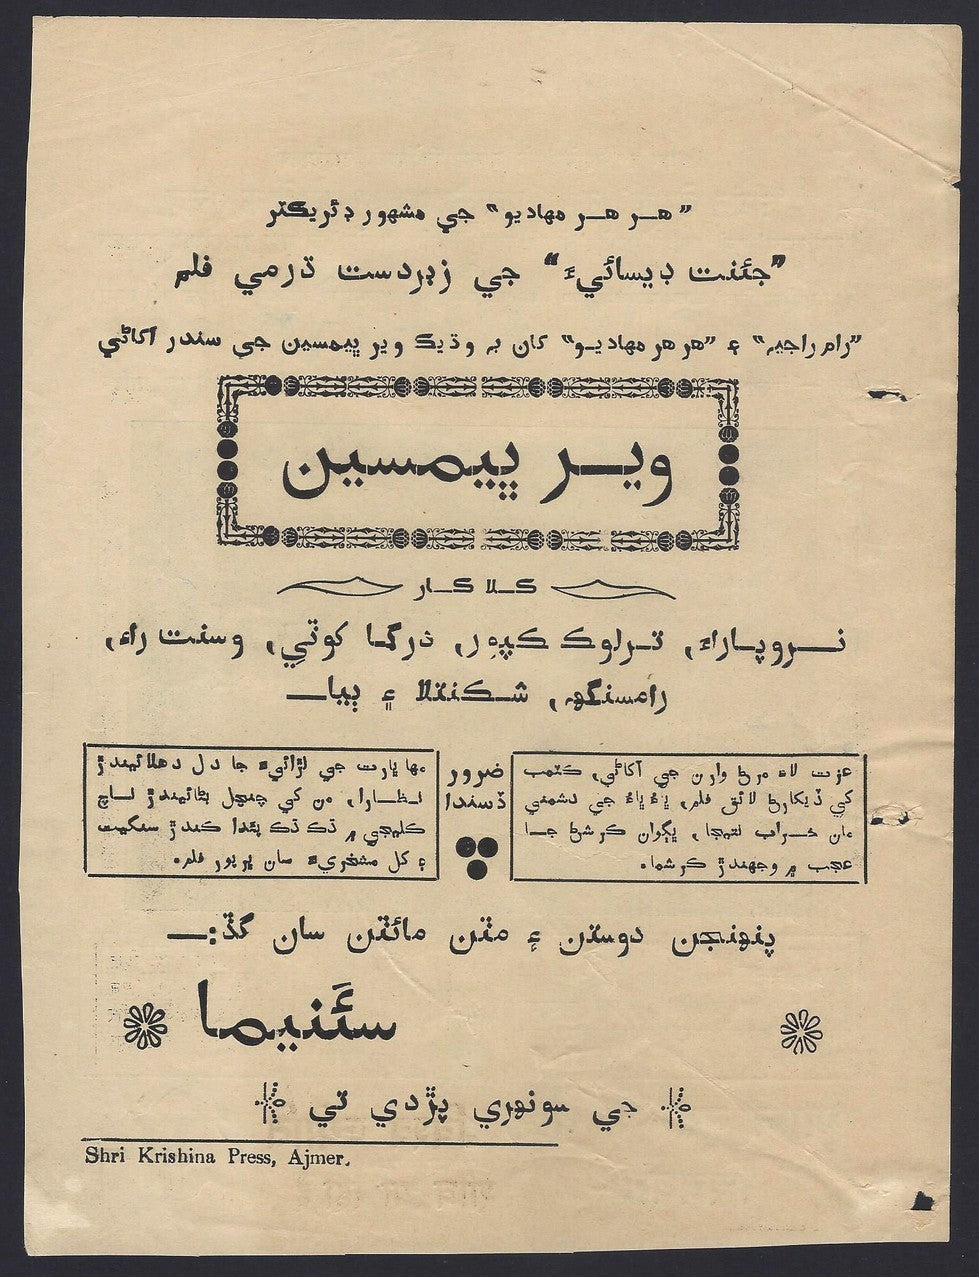 ”هر هر مهاديو“ جي مشهور ڊئريڪٽر
”جئنت ڊيسائيءَ“ جي زبردست ڌرمي فلم
”رام راجيه“ ۽ ”هر هر مهاديو“ کان به وڌيڪ وير ڀيمسين جي سندر آکاڻي
وير ڀيمسين
ڪلاڪار
نروپاراءِ, ترلوڪ ڪپور, درگا کوٽي, وسنت راءِ,
رامسنگهه, شڪنتلا ۽ ٻيا
عزت لاءِ مرڻ وارن جي آکاڻي, ڪٽمب
کي ڏيکارڻ لائق فلم, ڀاءُ ڀاءُ جي دشمني
مان خراب نتيجا, ڀڳوان ڪرشڻ جا
عجب ۾ وجهندڙ ڪرشما.
ضرور
ڏسندا
مها ڀارت جي لڙائيءَ جا دل دهلائيندڙ
نظارا, من کي چنچل بڻائيندڙ ناچ
ڪليجي ۾ ٿڌڪ پئدا ڪندڙ سنگيت
۽ کل مشخريءَ سان ڀرپور فلم.
پنهنجن دوستن ۽ مٽن مائٽن سان گڏ:ــ
سئنيما
جي سونهري پڙدي تي
Shri Krishina Press, Ajmer.